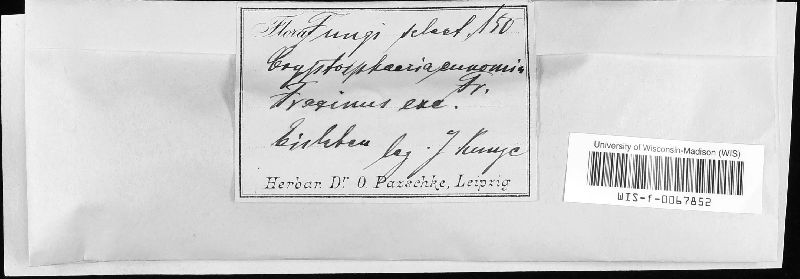 Flora Fungi select. 150
Cryptosphaeria eunomia
Fr.
Fraxinus exc.
Eisleben leg. J Kunze
Herbar. Dr. O. Pazschke, Leipzig
University of Wisconsin-Madison (WIS)
WIS-f-0067852